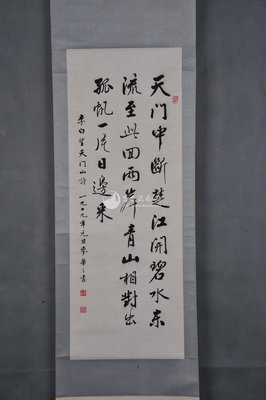 天门中断楚江開碧水东
流至此回两岸青山相對出
孤帆一片日邊来
李白望天门山诗 一九七九年元旦